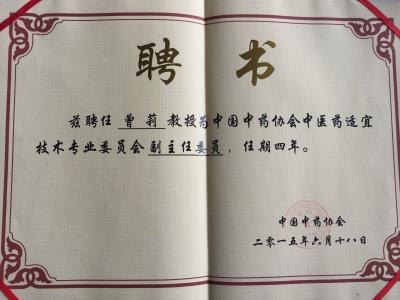 聘书
兹聘任 曾莉 教授为中国中药协会中医药适宜
技术专业委员会副主任委员，任期四年。
中国中药协会
二零一五年六月十八日